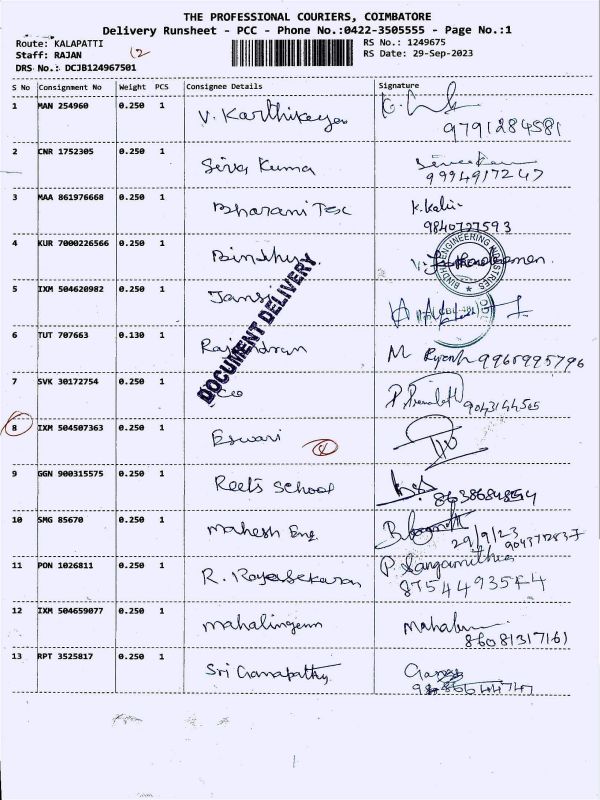 THE PROFESSIONAL COURIERS, COIMBATORE
Delivery Runsheet - PCC - Phone No.:0422-3505555 - Page No.:1
Route: KALAPATTI RS No.: 1249675
Staff: RAJAN 12 RS Date: 29-Sep-2023
DRS No.: DCJB124967501
S No Consignment No Weight PCS Consignee Details Signature
1 MAN 254960 0.250 1 V. Karthikeyan
9791284581
2 CNR 1752305 0.250 1 Siva Kuma
9994917247
3 MAA 861976668 0.250 1 Bharani Tec K. Kalin
9840727593
4 KUR 7000226566 0.250 1 Bindhu
BINDHU ENGINEERING INDUSTRIES
5 IXM 504620982 0.250 1 Jansi
DOCUMENT DELIVERY
6 TUT 707663 0.130 1 Rajendran M 9965995796
7 SVK 30172754 0.250 1
9043144505
8 IXM 504507363 0.250 1 Eswari
9 GGN 900315575 0.250 1 Reets School
8638684854
10 SMG 85670 0.250 1 Mahesh Eng
29/9/23
9043712837
11 PON 1026811 0.250 1 R. Rajasekaran P. Sangamithra
8754493544
12 IXM 504659077 0.250 1 mahalingam
86081317161
13 RPT 3525817 0.250 1 Sri Ganapathy Ganesh